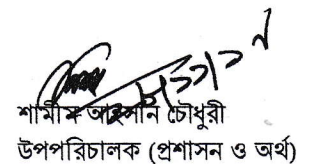 শামীম আহসান চৌধুরী
উপপরিচালক (প্রশাসন ও অর্থ)